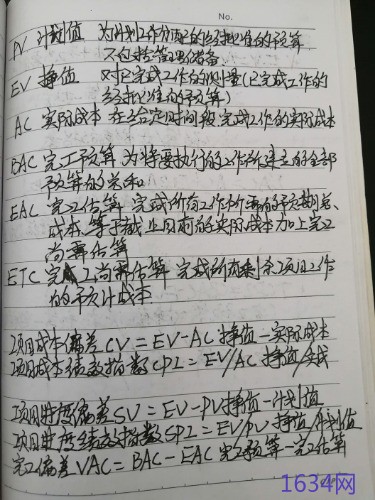 No.
PV 计划值 为计划工作分配的经批准的预算
不包括管理储备
EV 挣值 对已完成工作的测量(已完成工作的
经批准的预算)
AC 实际成本 在给定时间段完成工作的实际成本
BAC 完工预算 为将要执行的工作所建立的全部
预算的总和
EAC 完工估算 完成所有工作所需的预期总
成本,等于截止目前的实际成本加上完工
尚需估算
ETC 完工尚需估算 完成所有剩余项目工作
的预计成本
项目成本偏差CV=EV-AC 挣值-实际成本
项目成本绩效指数CPI=EV/AC 挣值/实成
项目进度偏差SV=EV-PV挣值-计划值
项目进度绩效指数SPI=EV/PV 挣值/计划值
完工偏差VAC=BAC-EAC 完工预算-完工估算
1634网